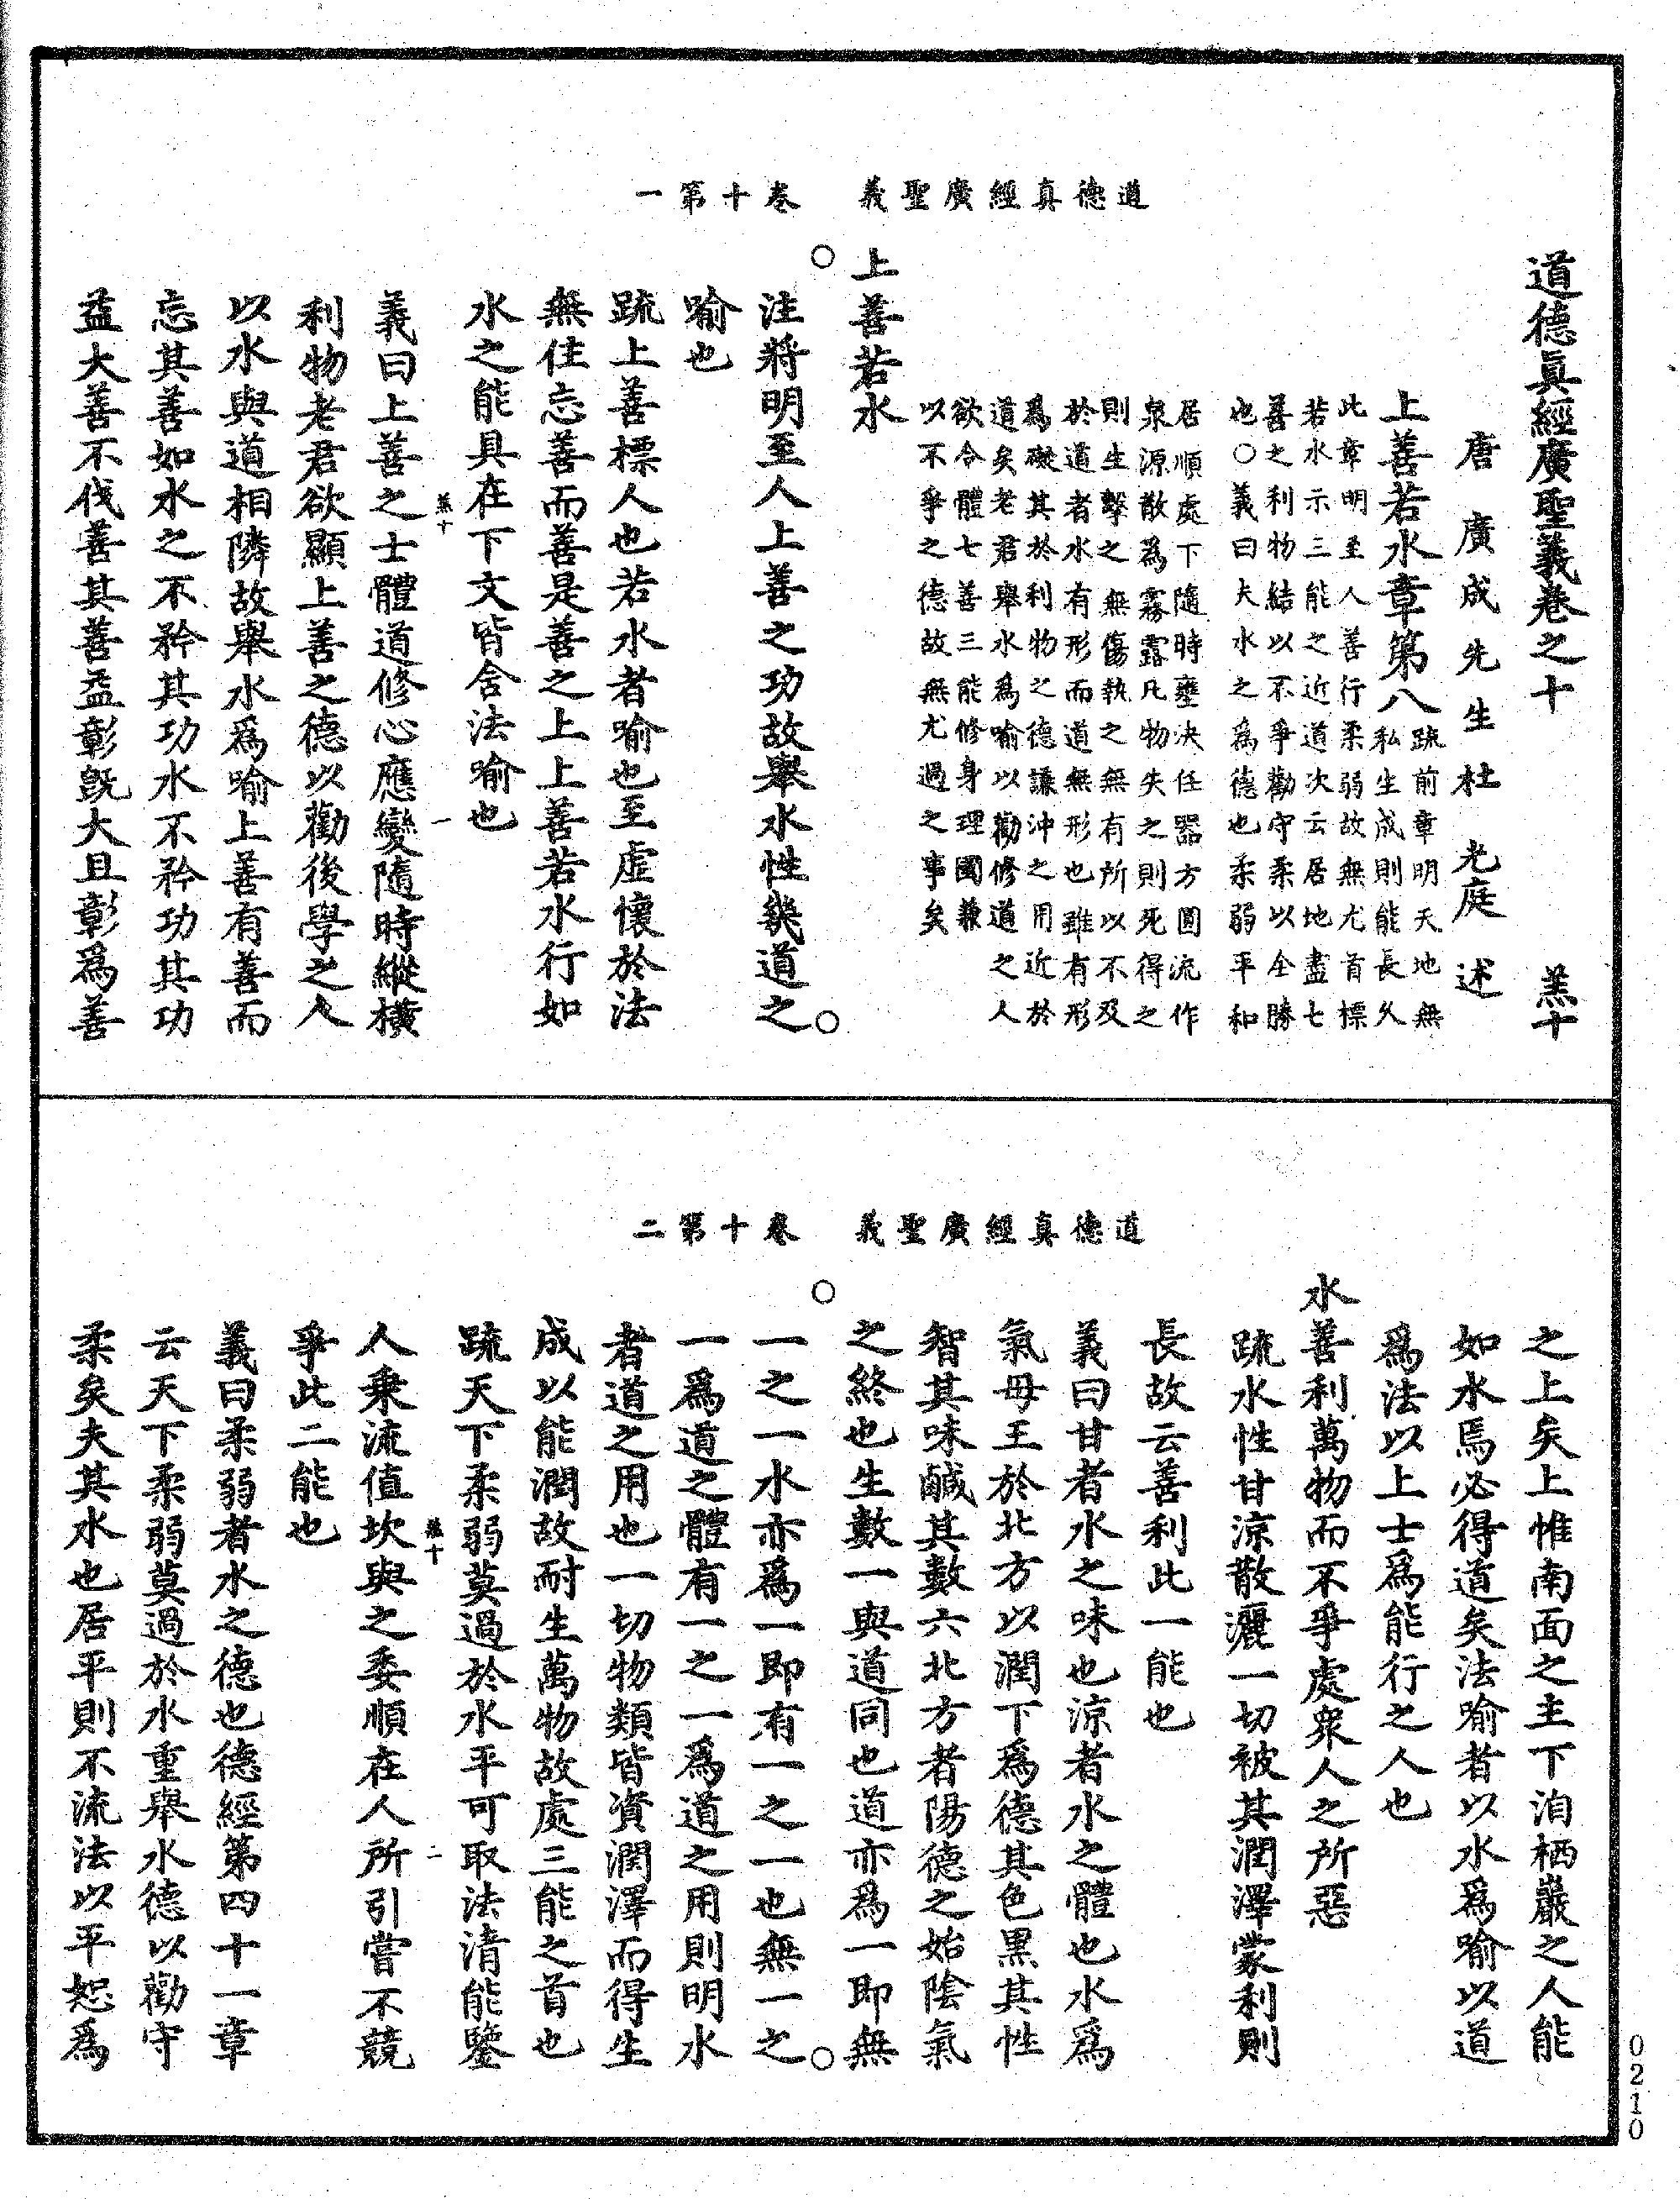 道德真經廣聖義　卷十第一
道德眞經廣聖義卷之十　羔十
唐廣成先生杜光庭述
上善若水章第八疏前章明天地無
私生成則能長久
此章明至人善行柔弱故無尤首標
若水示三能之近道次云居地盡七
善之利物結以不爭勸守柔以全勝
也○義曰夫水之爲德也柔弱平和
居順處下隨時壅決任器方圓流作
泉源散爲霧露凡物失之則死得之
則生擊之無傷執之無有所以不及
於道者水有形而道無形也雖有形
爲礙其於利物之德謙沖之用近於
道矣老君舉水爲喻以勸修道之人
欲令體七善三能修身理國兼
以不爭之德故無尤過之事矣
上善若水
○　○
注將明至人上善之功故舉水性幾道之
喻也
疏上善標人也若水者喻也至虛懷於法
無住忘善而善是善之上上善若水行如
水之能具在下文皆含法喻也
羔十　一
義曰上善之士體道修心應變隨時縱橫
利物老君欲顯上善之德以勸後學之人
以水與道相隣故舉水爲喻上善有善而
忘其善如水之不矜其功水不矜功其功
益大善不伐善其善益彰旣大且彰爲善
道德真經廣聖義　卷十第二
之上矣上惟南面之主下洎栖巖之人能
如水焉必得道矣法喻者以水爲喻以道
爲法以上士爲能行之人也
水善利萬物而不爭處衆人之所惡
疏水性甘涼散灑一切被其潤澤蒙利則
長故云善利此一能也
義曰甘者水之味也涼者水之體也水爲
氣母王於北方以潤下爲德其色黑其性
智其味鹹其數六北方者陽德之始陰氣
之終也生數一與道同也道亦爲一即無
○　○
一之一水亦爲一即有一之一也無一之
一爲道之體有一之一爲道之用則明水
者道之用也一切物類皆資潤澤而得生
成以能潤故耐生萬物故處三能之首也
疏天下柔弱莫過於水平可取法清能鑒
羔十　二
人乗流值坎與之委順在人所引嘗不競
爭此二能也
義曰柔弱者水之德也德經第四十一章
云天下柔弱莫過於水重舉水德以勸守
柔矣夫其水也居平則不流法以平恕爲
0210